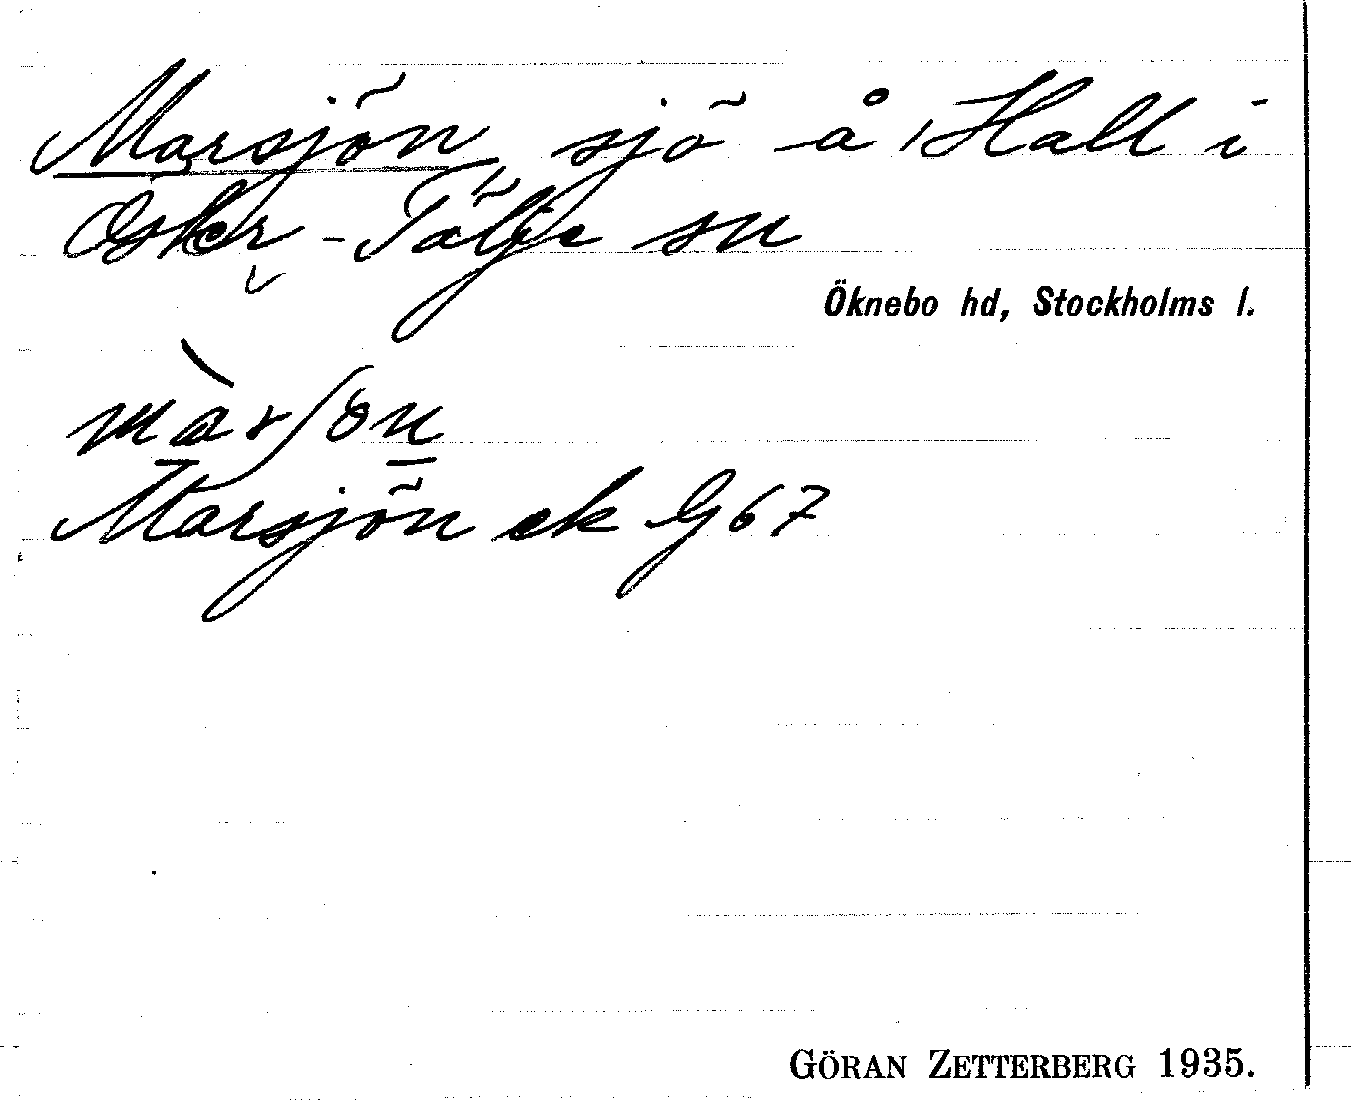 Marsjön sjö å Hall i
Öster-Tälje sn
Öknebo hd, Stockholms l.
màrʃön
Marsjön ek G67
GÖRAN ZETTERBERG 1935.